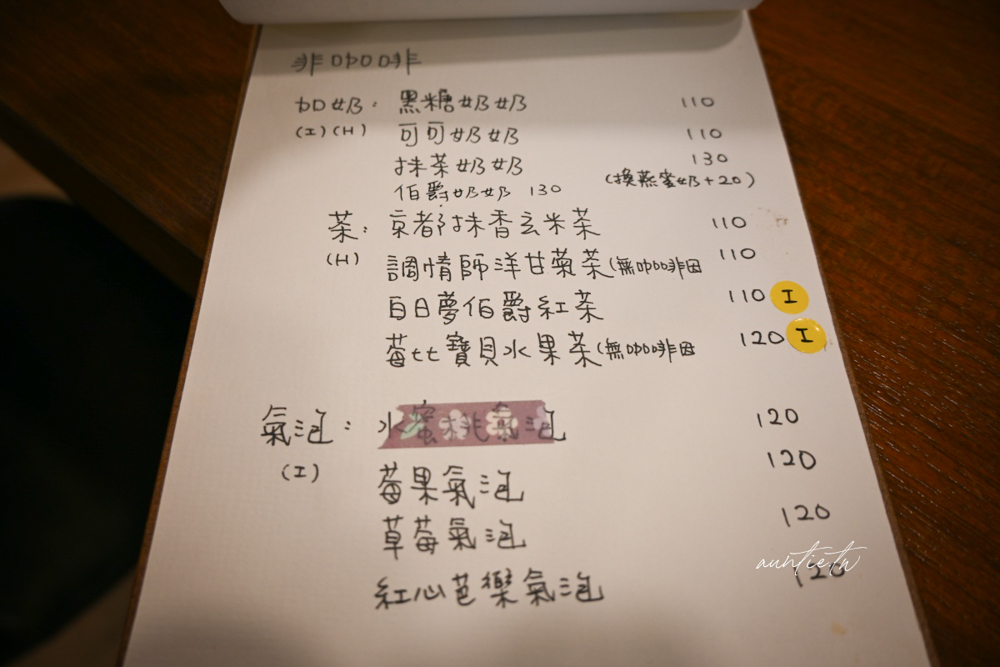 非咖啡
加奶: 黑糖奶奶 110
(I)(H) 可可奶奶 110
抹茶奶奶 130
伯爵奶奶 130 (換燕蜜奶+20)
茶: 京都抹香玄米茶 110
(H) 調情師洋甘菊茶(無咖啡因 110
白日夢伯爵紅茶 110 I
莓比寶貝水果茶(無咖啡因 120 I
氣泡: 水蜜桃氣泡 120
(I) 莓果氣泡 120
草莓氣泡 120
紅心芭樂氣泡 120
auntie.tw